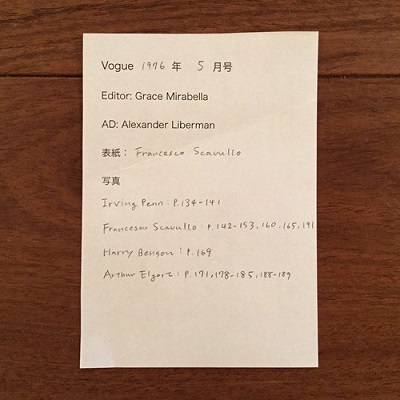 Vogue 1976 年 5 月号
Editor: Grace Mirabella
AD: Alexander Liberman
表紙： Francesco Scavullo
写真
Irving Penn : P.134-141
Francesco Scavullo : P.142-153, 160, 165, 191
Harry Benson : P.169
Arthur Elgort : P.171, 178-185, 188-189